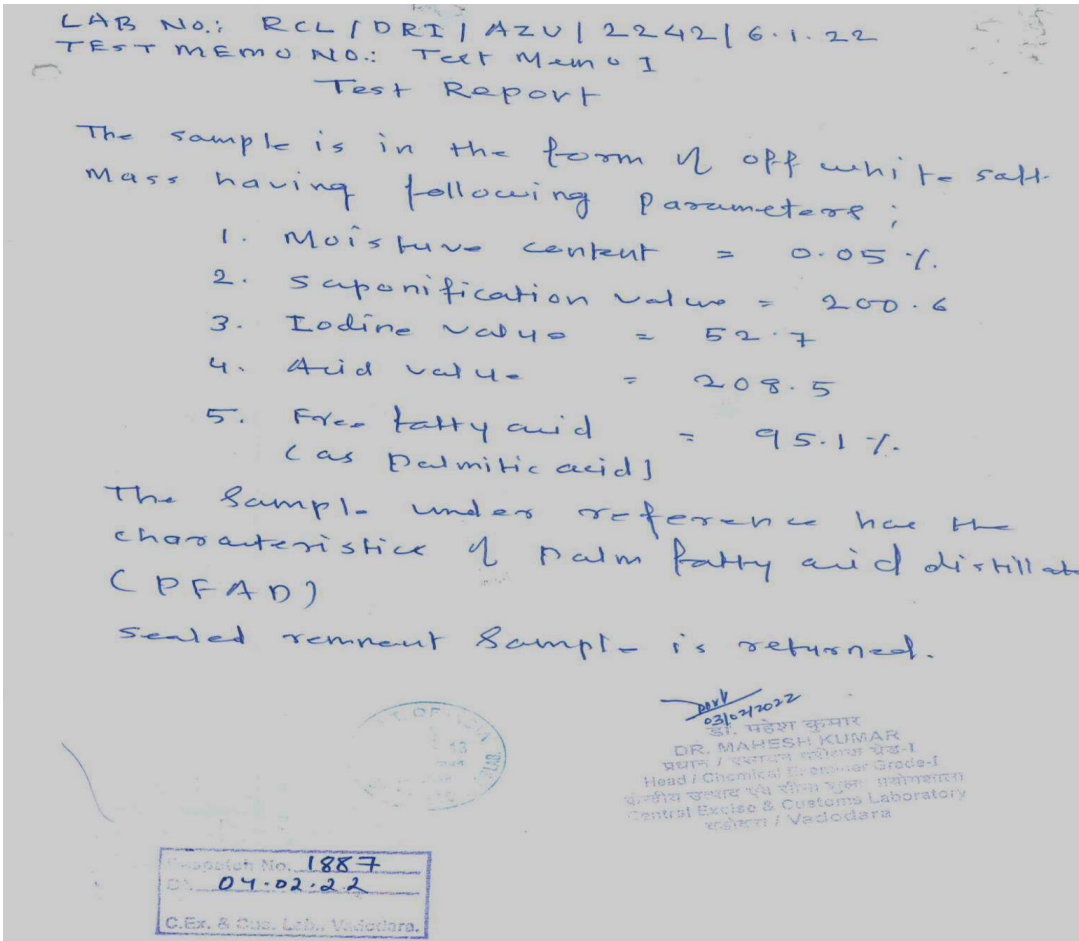 LAB NO.: RCL / DRI / AZU / 2242 / 6.1.22
TEST MEMO NO.: Test Memo I
Test Report
The sample is in the form of off white soft
mass having following parameters ;
1. Moisture content = 0.05 %.
2. Saponification value = 200.6
3. Iodine value = 52.7
4. Acid value = 208.5
5. Free fatty acid = 95.1 %.
(as Palmitic acid)
The sample under reference has the
characteristics of Palm fatty acid distillate
(PFAD)
Sealed remnant sample is returned.
03/02/2022
डॉ. महेश कुमार
DR. MAHESH KUMAR
Head / Chemical Examiner Grade-I
Central Excise & Customs Laboratory
वडोदरा / Vadodara
Despatch No. 1887
04.02.22
C.Ex. & Cus. Lab., Vadodara.